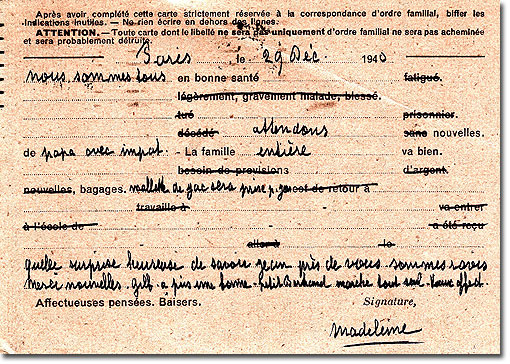 Après avoir complété cette carte strictement réservée à la correspondance d'ordre familial, biffer les
indications inutiles. — Ne rien écrire en dehors des lignes.
ATTENTION. — Toute carte dont le libellé ne sera pas uniquement d'ordre familial ne sera pas acheminée
et sera probablement détruite.
le 29 Déc. 1940
nous sommes tous en bonne santé fatigué.
légèrement, gravement malade, blessé.
tué prisonnier.
décédé attendons sans nouvelles.
de papa avec impat. - La famille entière va bien.
besoin de provisions d'argent.
nouvelles, bagages. sera est de retour à
travaille à va entrer
à l'école de a été reçu
aller à le
Quelle surprise heureuse de savoir près de vous sommes ravis
Merci nouvelles. a pris une bonne. Petit Bertrand marche tout seul.
Affectueuses pensées. Baisers. Signature,
Madeleine